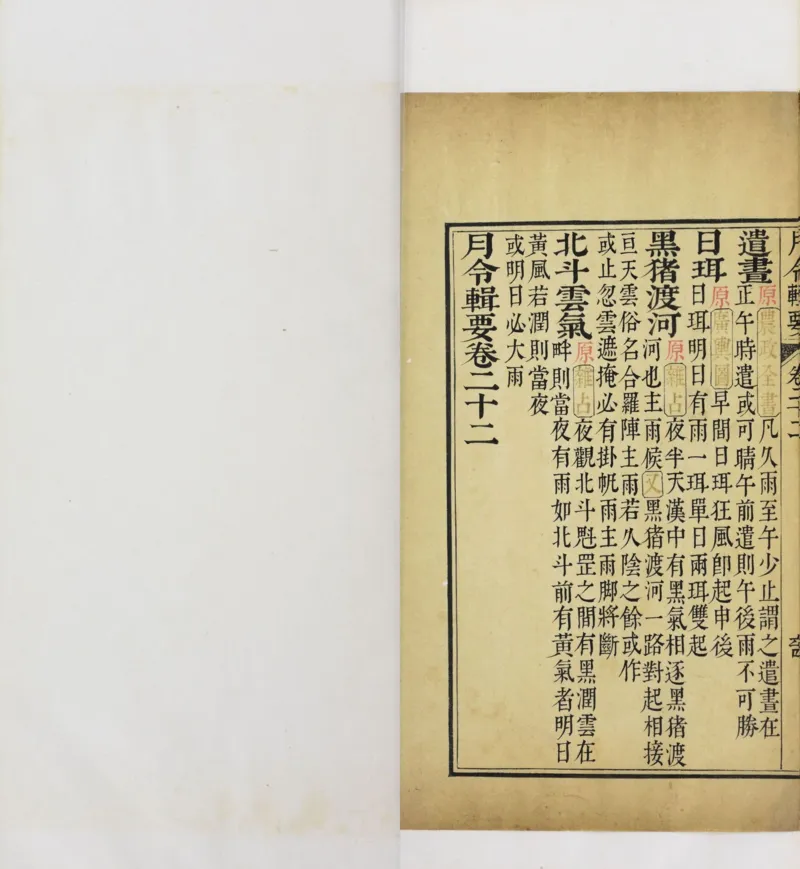 月令輯要 卷二十二
遣晝
原農政全書凡久雨至午少止謂之遣晝在
正午時遣或可晴午前遣則午後雨不可勝
日珥
原廣輿圖早間日珥狂風卽起申後
日珥明日有雨一珥單日兩珥雙起
黑猪渡河
原雜占夜半天漢中有黑氣相逐黑猪渡
河也主雨候又黑猪渡河一路對起相接
亘天雲俗名合羅陣主雨若久陰之餘或作
或止忽雲遮掩必有掛帆雨主雨脚將斷
北斗雲氣
原雜占夜觀北斗魁罡之間有黑潤雲在
畔則當夜有雨如北斗前有黃氣者明日
黃風若潤則當夜
或明日必大雨
月令輯要卷二十二